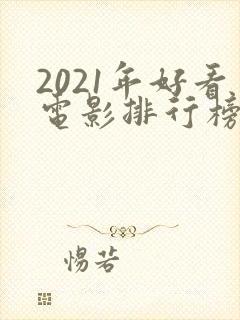 2021年好看
电影排行榜
惕若